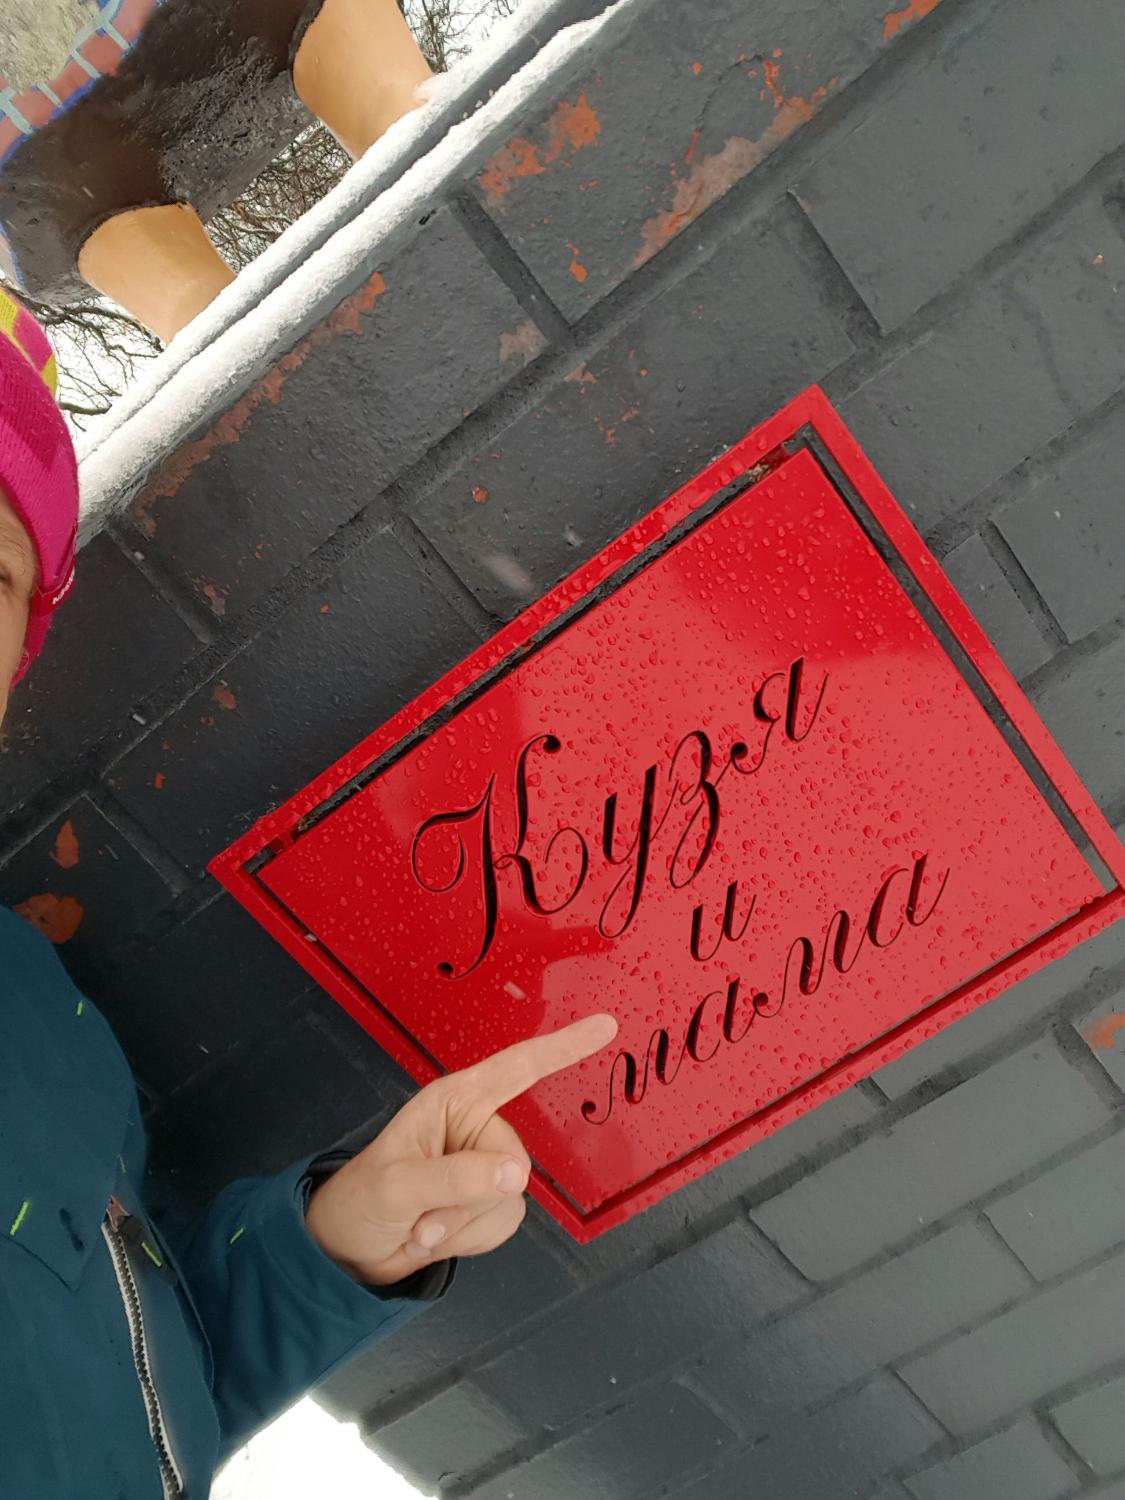 Кузя
и
мама